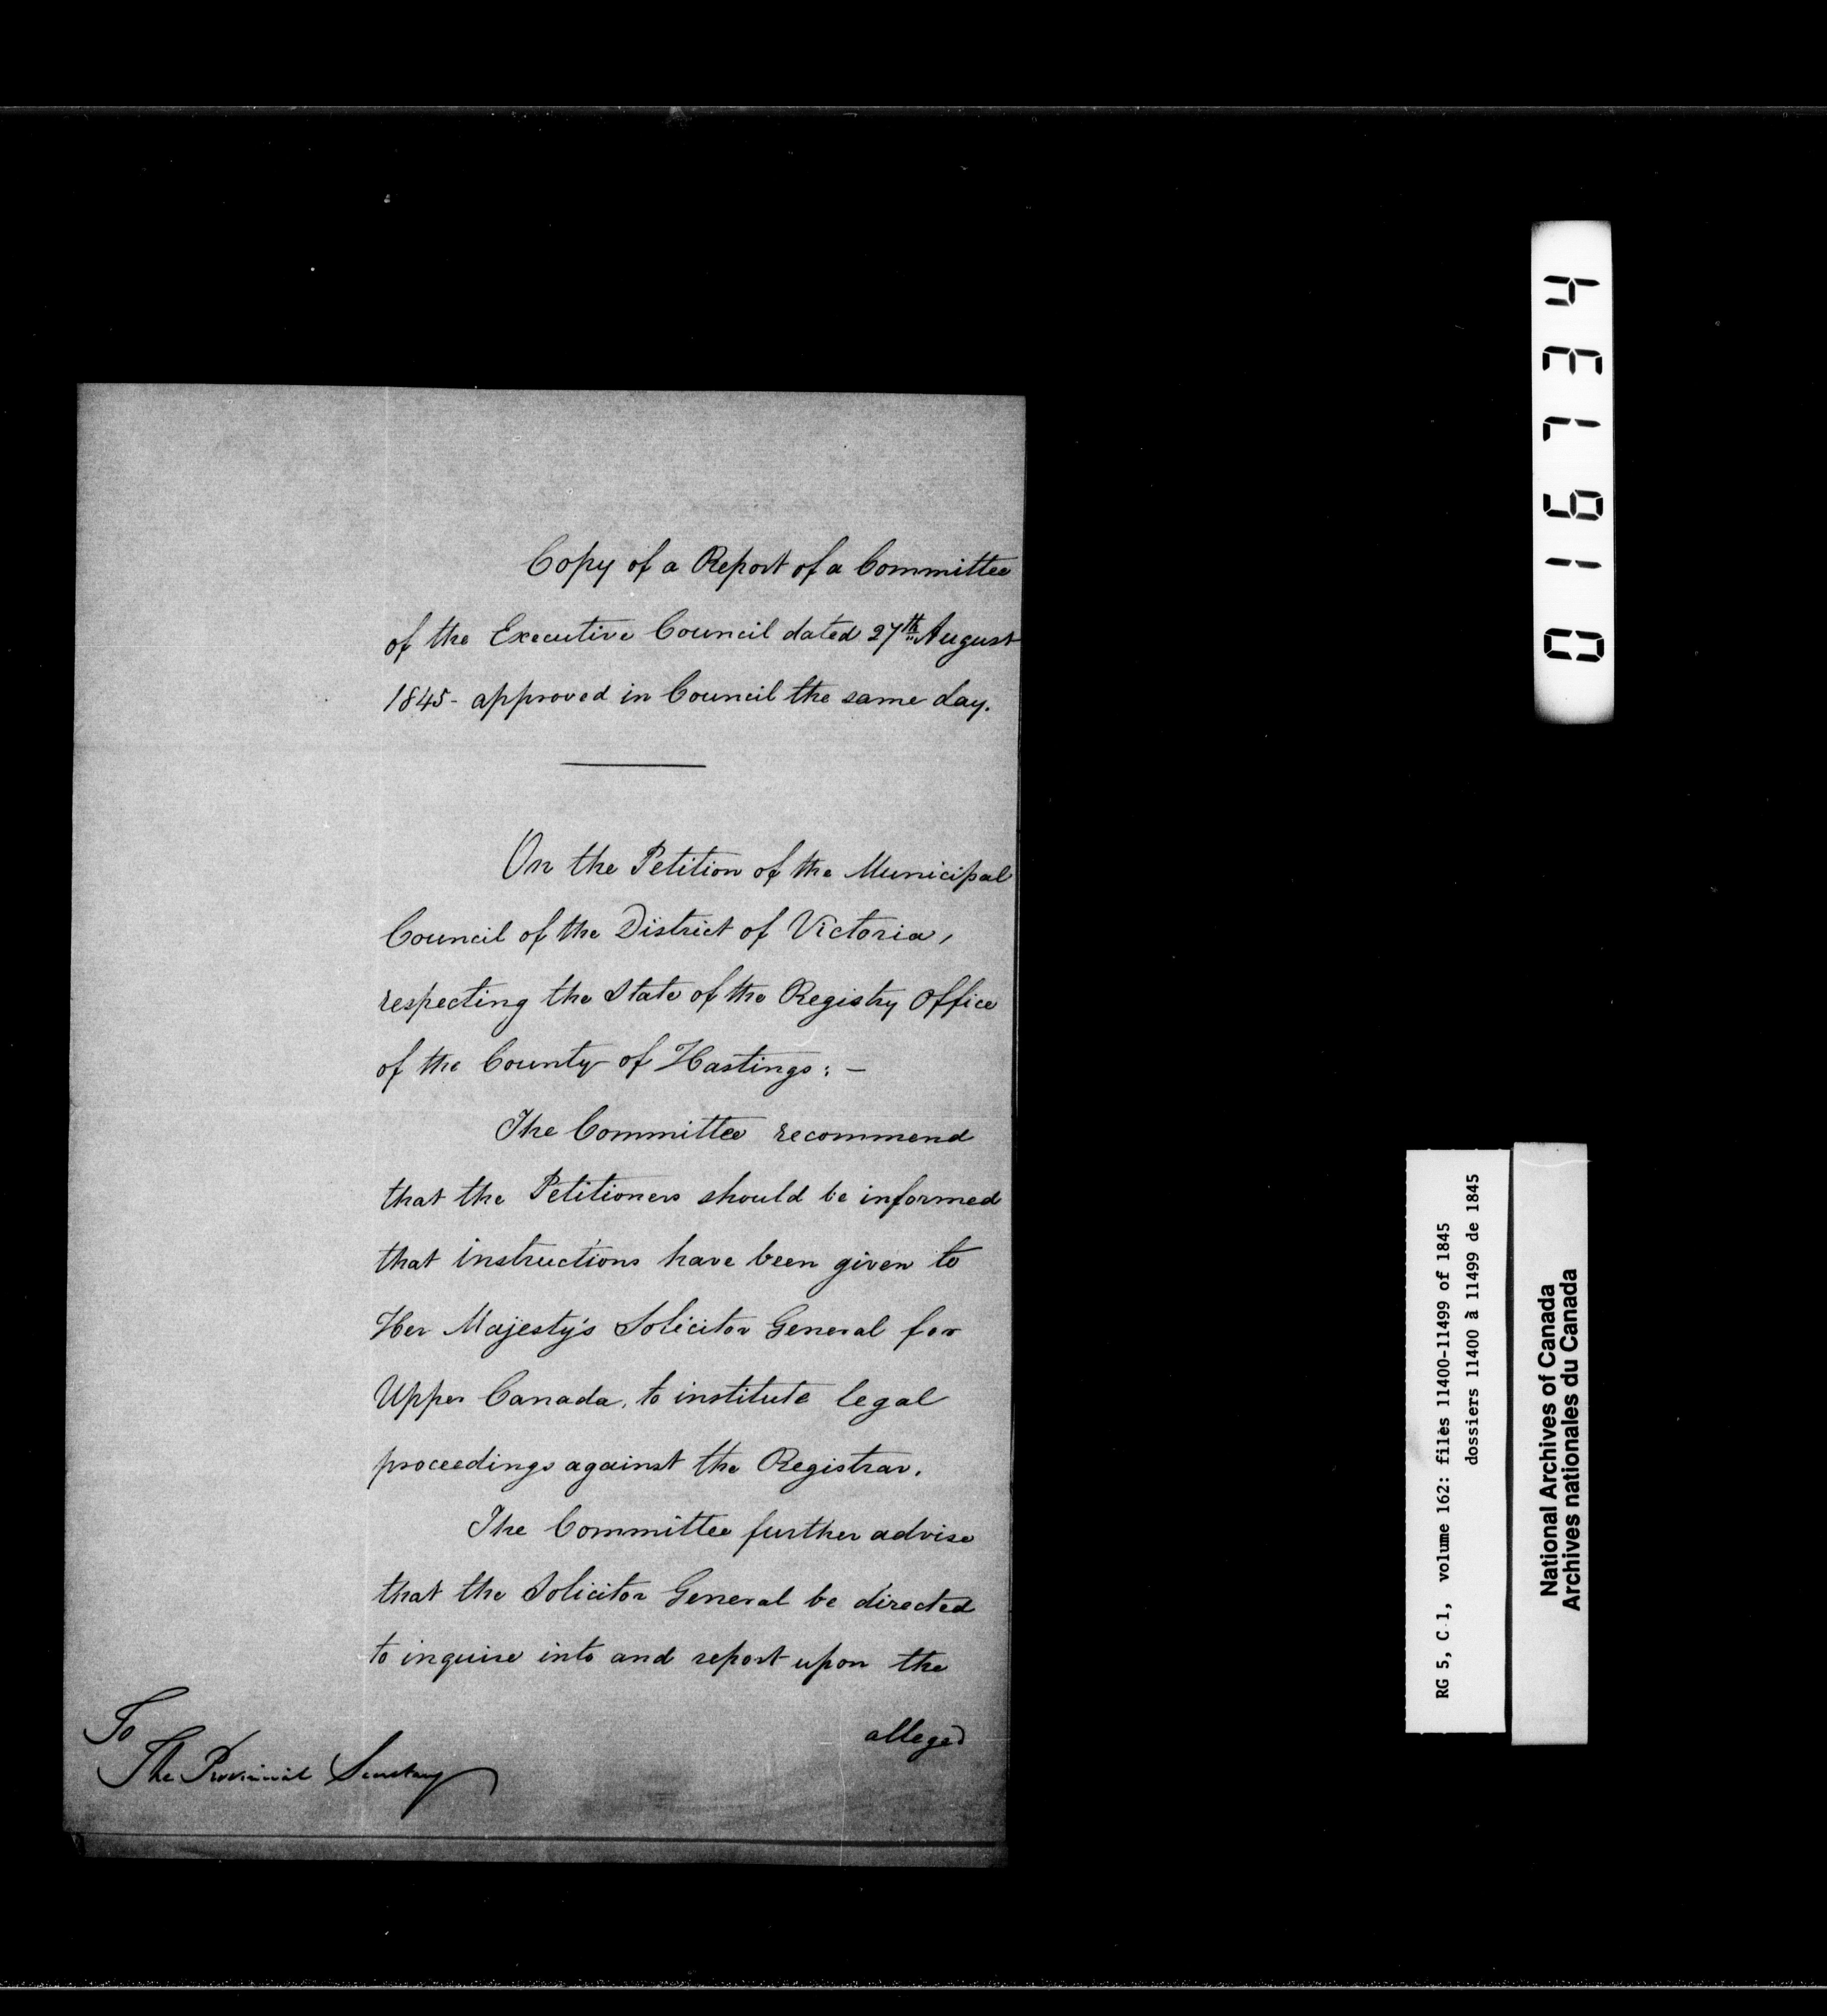 Copy of a Report of a Committee
of the Executive Council dated 27th August
1845 - approved in Council the same day.
On the Petition of the Municipal
Council of the District of Victoria,
respecting the State of the Registry Office
of the County of Hastings: —
The Committee recommend
that the Petitioners should be informed
that instructions have been given to
Her Majesty's Solicitor General for
Upper Canada, to institute legal
proceedings against the Registrar.
The Committee further advise
that the Solicitor General be directed
to inquire into and report upon the
alleged
To
The Provincial Secretary
017 9134
RG 5, C 1, volume 162: files 11400-11499 of 1845
dossiers 11400 à 11499 de 1845
National Archives of Canada
Archives nationales du Canada